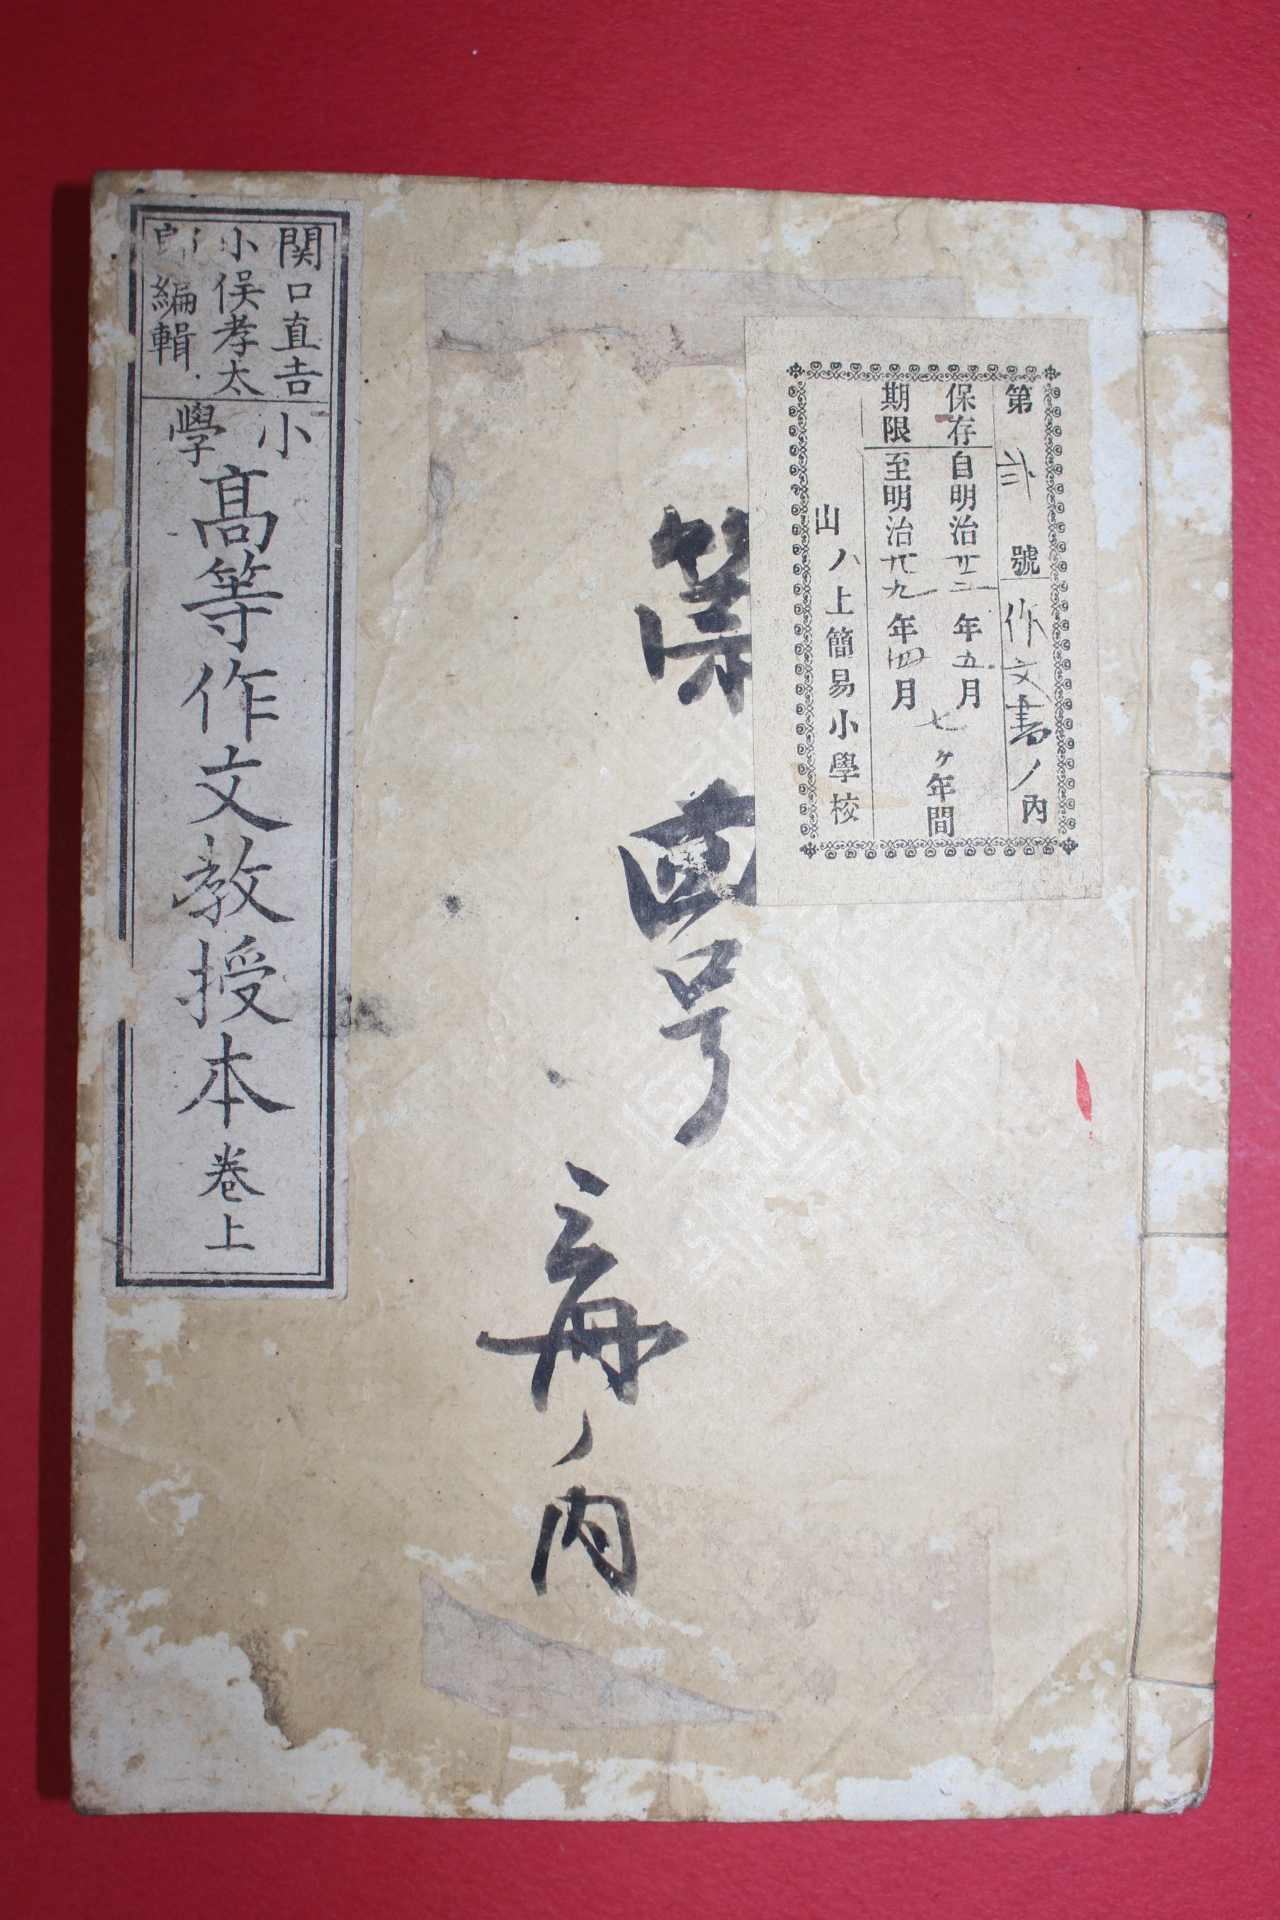 第 弐 號 作文書ノ内
保存 自明治廿二年五月
期限 至明治廿九年四月
七ヶ年間
山ノ上簡易小學校
第四号
三冊ノ内
関口直吉
小俣孝太
郎編輯
小學高等作文教授本卷上